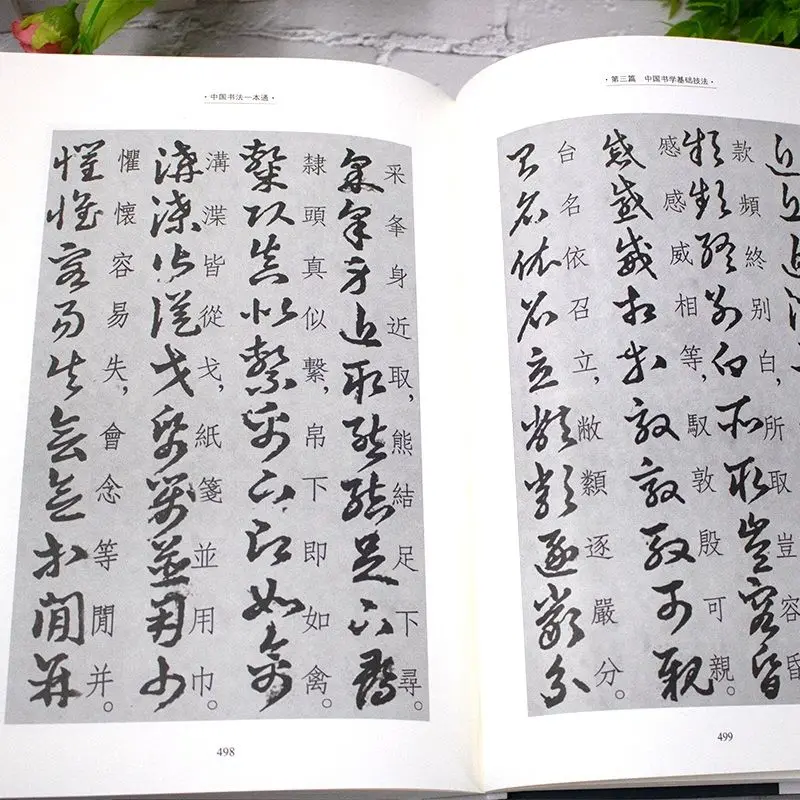 ·中国书法一本通·
采夆身近取,熊結足下尋。
隸頭真似繫,帛下即如禽。
溝渫皆從戈,紙箋並用巾。
懼懷容易失,會念等閒并。
498
·第三篇 中国书学基础技法·
款頻終别白,所取豈容昏
感感威相等,馭敦殷可親。
台名依召立,敝纇逐嚴分。
499